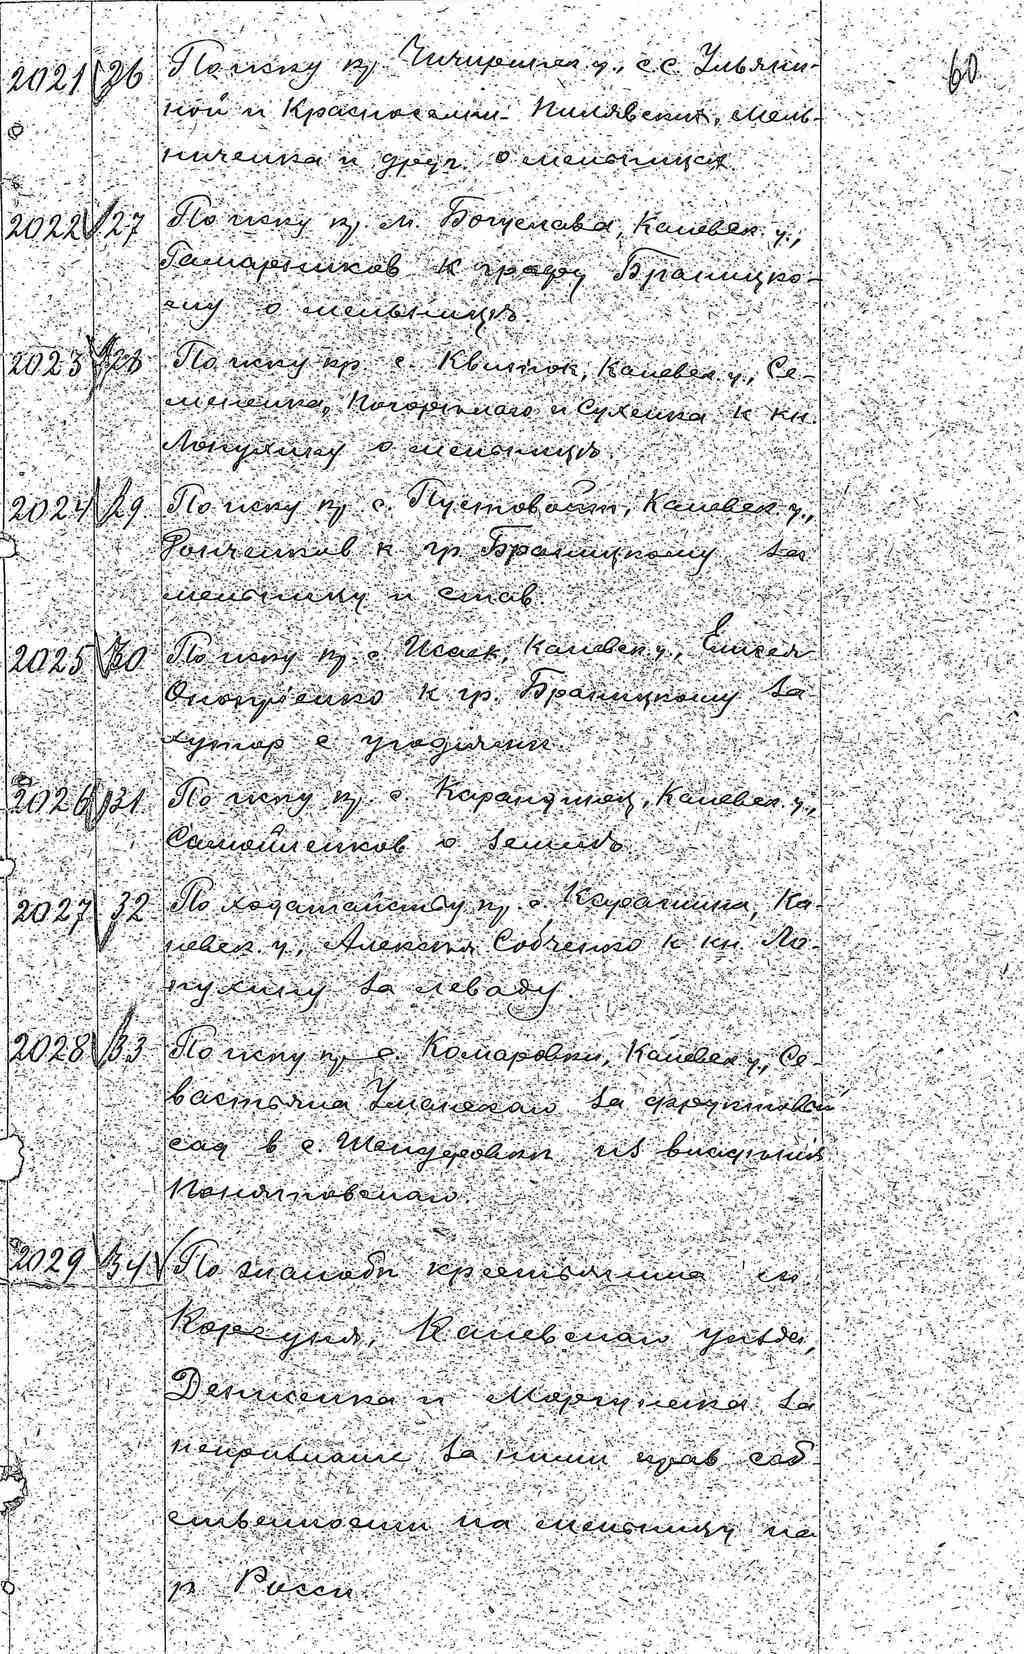 60
2021 26 По иску кр. Чигиринск. у., с.с. Ульянин-
ной и Красноселки Пилявских, Мель-
ниченка и друг. о мельницах
2022 27 По иску кр. м. Богуслава, Каневск. у.,
Гамарников к графу Браницко-
му о мельнице.
2023 28 По иску кр. с. Квиток, Каневск. у., Се-
мененка, Погорелого и Сухенка к кн.
Лопухину о мельнице.
2024 29 По иску кр. с. Пустовойт, Каневск. у.,
к гр. Браницкому за
мельницу и став.
2025 30 По иску кр. с. Исаек, Каневск. у., Елисея
Оноприенко к гр. Браницкому за
хутор с угодиями.
2026 31 По иску кр. с. Карандинец, Каневск. у.,
Самойленков о земле
2027 32 По ходатайству кр. с. Карашина, Ка-
невск. у., Алексея Собченко к кн. Ло-
пухину за леваду.
2028 33 По иску кр. с. Комаровки, Каневск. у., Се-
вастьяна Уманского за фруктовый
сад в с. Шендеровки из владения
Понятовского.
2029 34 По жалобе крестьянина м.
Корсуня, Каневского уезда,
Денисенка и Моргуненка за
непризнание за ними прав соб-
ственности на мельницу на
р. Росси.